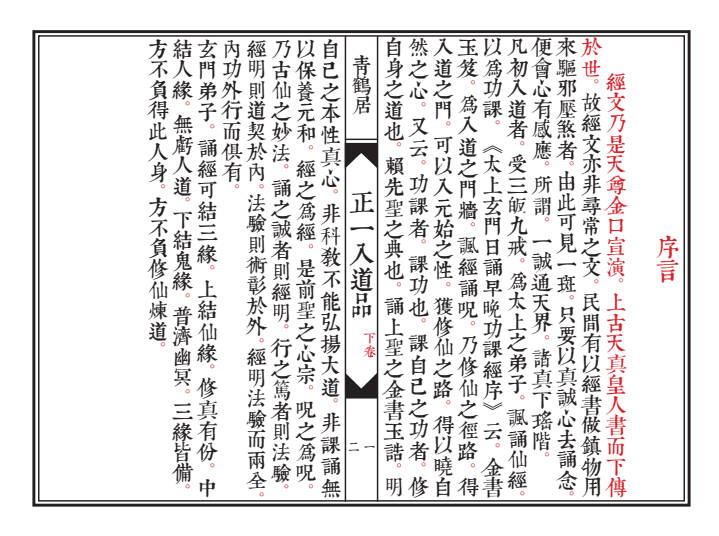 序言
經文乃是天尊金口宣演。上古天真皇人書而下傳
於世。故經文亦非尋常之文。民間有以經書做鎮物用
來驅邪壓煞者。由此可見一斑。只要以真誠心去誦念。
便會心有感應。所謂。一誠通天界。諸真下瑤階。
凡初入道者。受三皈九戒。爲太上之弟子。諷誦仙經。
以爲功課。《太上玄門日誦早晚功課經序》云。金書
玉笈。爲入道之門牆。諷經誦呪。乃修仙之徑路。得
入道之門。可以入元始之性。獲修仙之路。得以曉自
然之心。又云。功課者。課功也。課自己之功者。修
自身之道也。賴先聖之典也。誦上聖之金書玉誥。明
青鶴居
正一入道品
下卷
一二
自己之本性真心。非科教不能弘揚大道。非課誦無
以保養元和。經之爲經。是前聖之心宗。呪之爲呪。
乃古仙之妙法。誦之誠者則經明。行之篤者則法驗。
經明則道契於內。法驗則術彰於外。經明法驗而兩全。
內功外行而俱有。
玄門弟子。誦經可結三緣。上結仙緣。修真有份。中
結人緣。無虧人道。下結鬼緣。普濟幽冥。三緣皆備。
方不負得此人身。方不負修仙煉道。